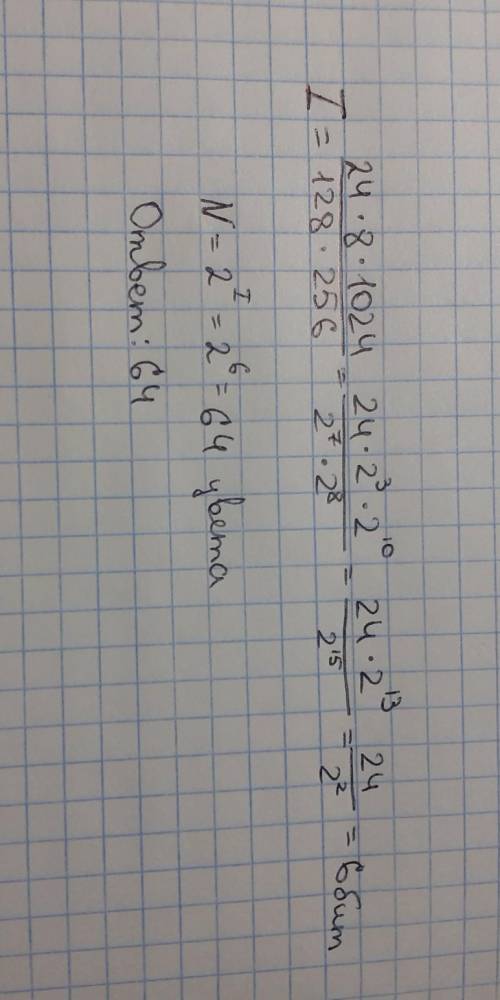 I = 24 · 8 · 1024 / 128 · 256 = 24 · 2³ · 2¹⁰ / 2⁷ · 2⁸ = 24 · 2¹³ / 2¹⁵ = 24 / 2² = 6 бит
N = 2ᴵ = 2⁶ = 64 цвета
Ответ: 64